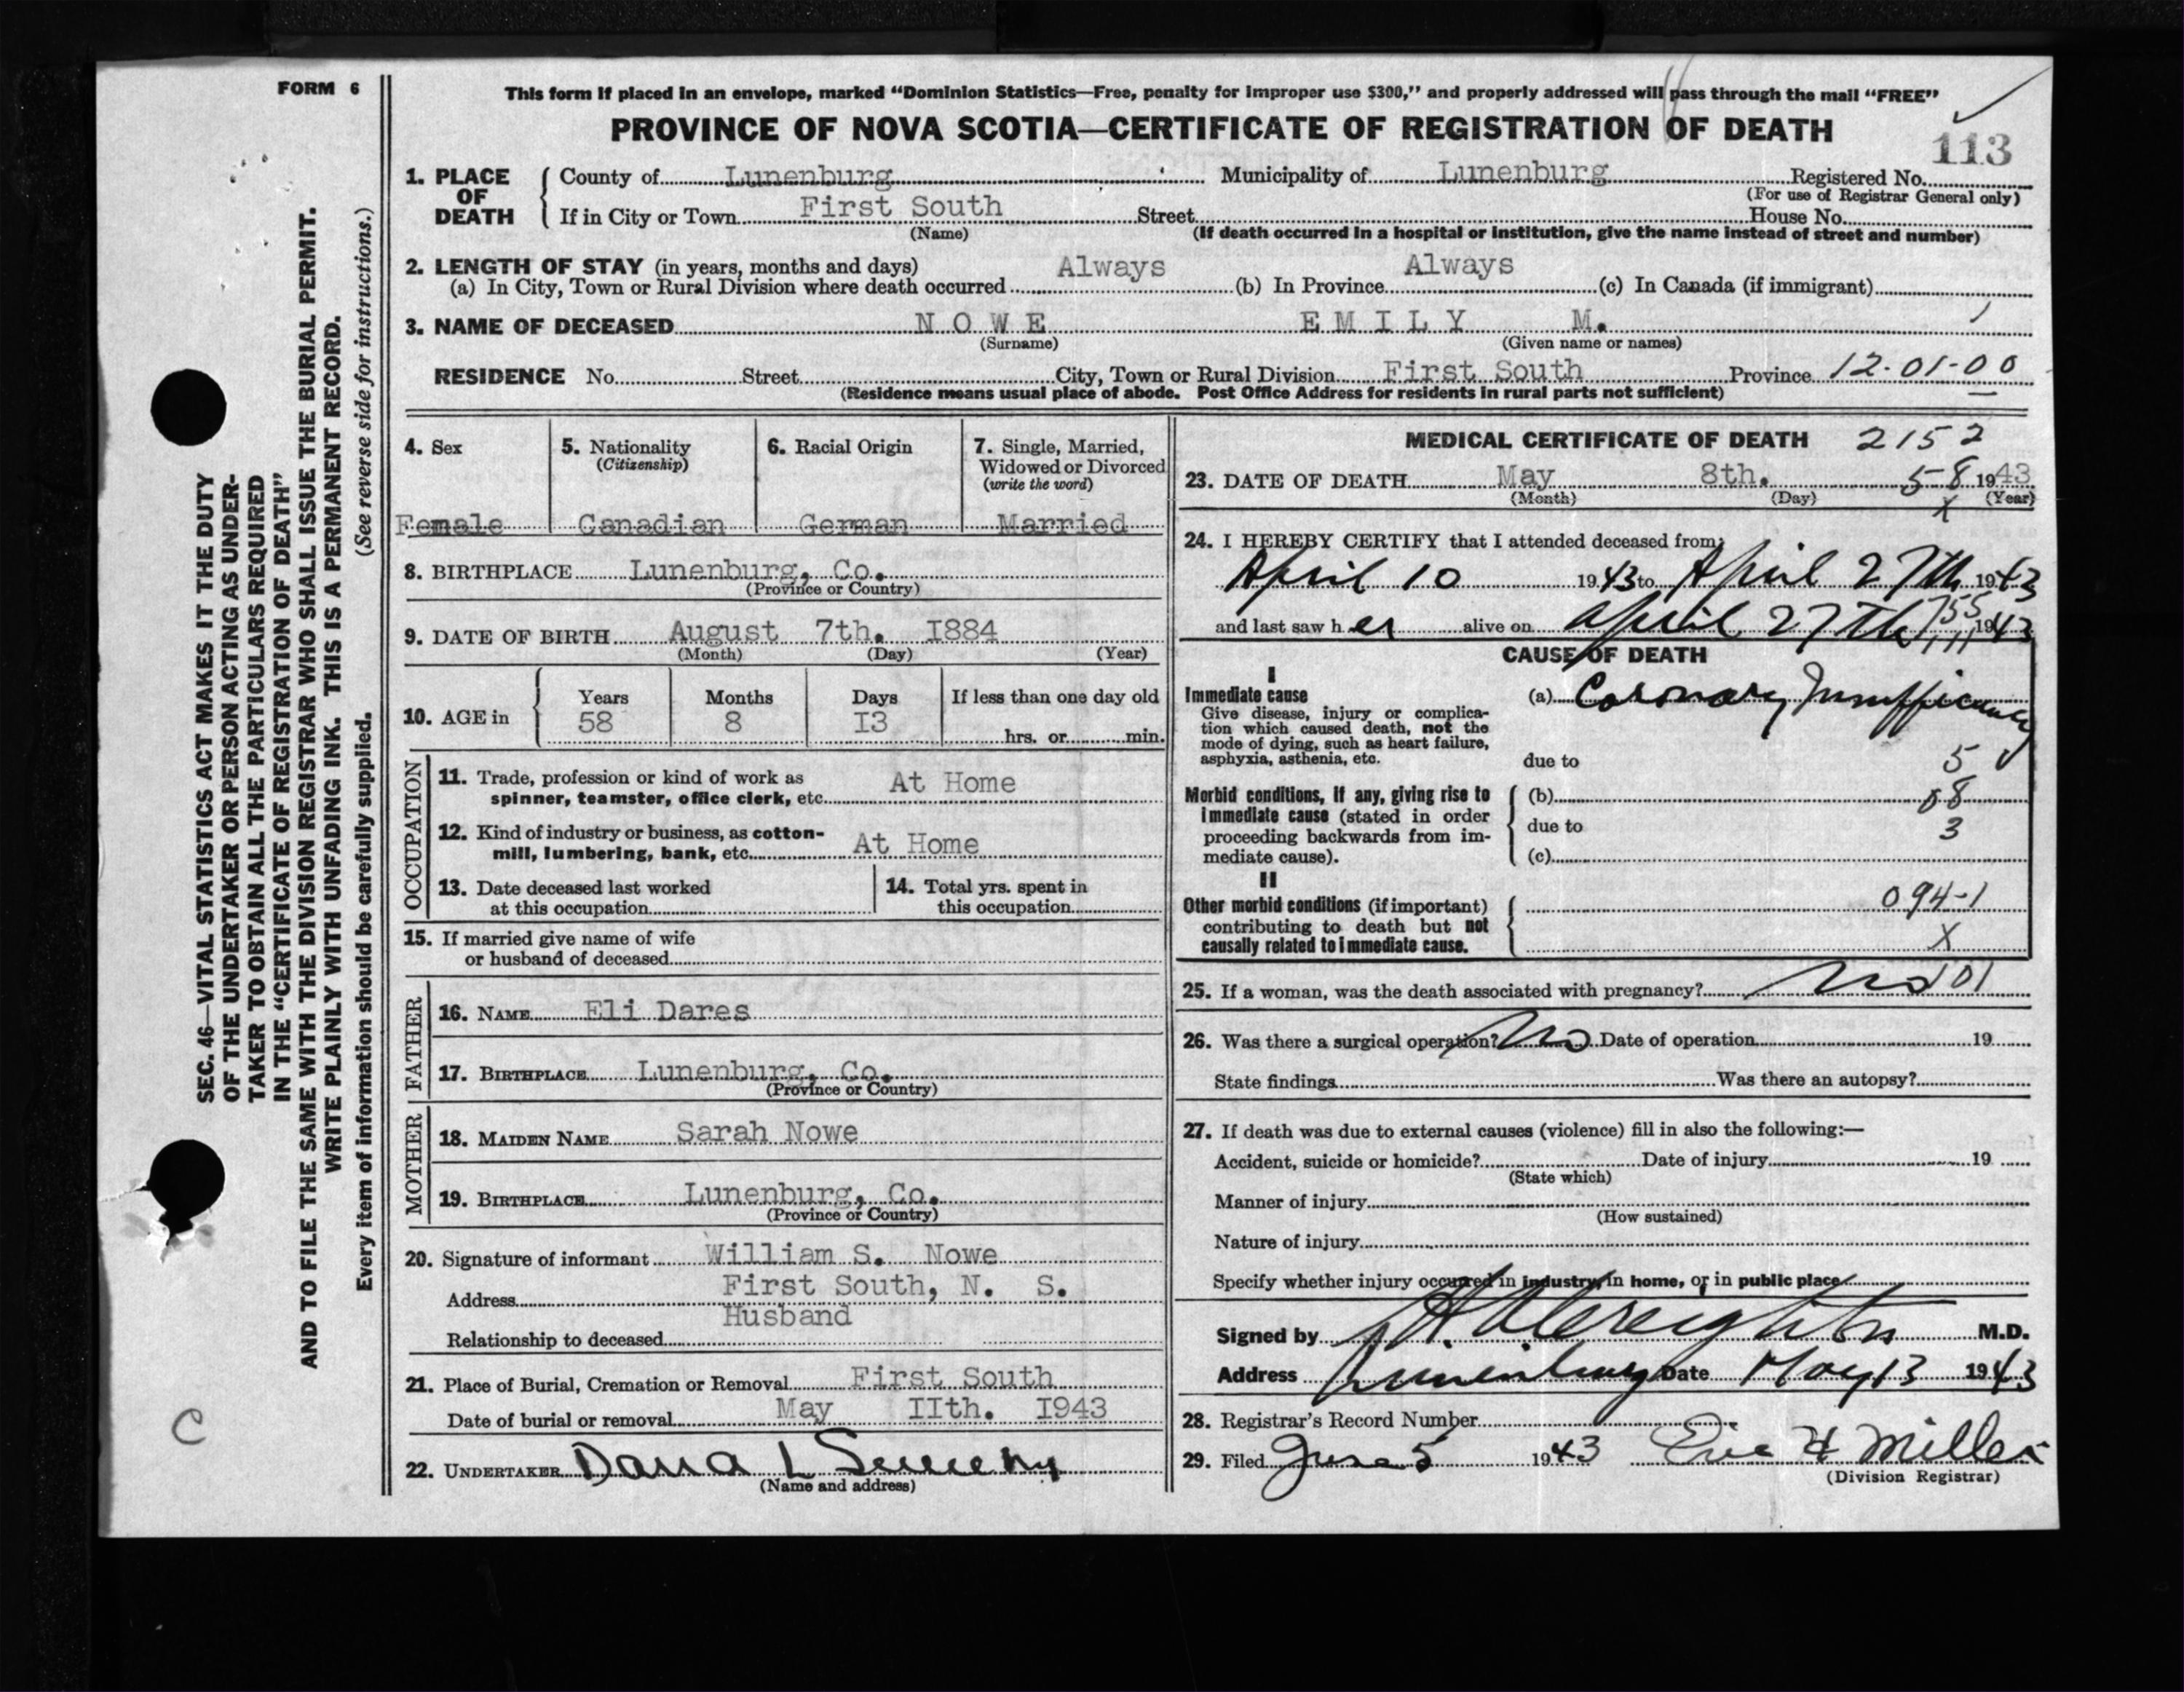 FORM 6
This form if placed in an envelope, marked “Dominion Statistics—Free, penalty for improper use $300,” and properly addressed will pass through the mail “FREE”
PROVINCE OF NOVA SCOTIA—CERTIFICATE OF REGISTRATION OF DEATH
113
1. PLACE OF DEATH
County of Lunenburg Municipality of Lunenburg Registered No.
(For use of Registrar General only)
If in City or Town First South Street House No.
(Name) (If death occurred in a hospital or institution, give the name instead of street and number)
2. LENGTH OF STAY (in years, months and days)
(a) In City, Town or Rural Division where death occurred Always (b) In Province Always (c) In Canada (if immigrant)
3. NAME OF DECEASED N O W E E M I L Y M.
(Surname) (Given name or names)
RESIDENCE No. Street City, Town or Rural Division First South Province 12-01-00
(Residence means usual place of abode. Post Office Address for residents in rural parts not sufficient)
4. Sex
Female
5. Nationality
(Citizenship)
Canadian
6. Racial Origin
German
7. Single, Married,
Widowed or Divorced
(write the word)
Married
8. BIRTHPLACE Lunenburg, Co.
(Province or Country)
9. DATE OF BIRTH August 7th. I884
(Month) (Day) (Year)
10. AGE in
Years Months Days If less than one day old
58 8 I3 hrs. or min.
OCCUPATION
11. Trade, profession or kind of work as
spinner, teamster, office clerk, etc. At Home
12. Kind of industry or business, as cotton-
mill, lumbering, bank, etc. At Home
13. Date deceased last worked
at this occupation
14. Total yrs. spent in
this occupation
15. If married give name of wife
or husband of deceased
FATHER
16. NAME Eli Dares
17. BIRTHPLACE Lunenburg, Co.
(Province or Country)
MOTHER
18. MAIDEN NAME Sarah Nowe
19. BIRTHPLACE Lunenburg, Co.
(Province or Country)
20. Signature of informant William S. Nowe
Address First South, N. S.
Relationship to deceased Husband
21. Place of Burial, Cremation or Removal First South
Date of burial or removal May IIth. I943
22. UNDERTAKER Dana L Sweeny
(Name and address)
MEDICAL CERTIFICATE OF DEATH 2152
23. DATE OF DEATH May 8th. 5-8 1943
(Month) (Day) (Year)
X
24. I HEREBY CERTIFY that I attended deceased from:
April 10 1943 to April 27th 1943
and last saw her alive on april 27th 1943
CAUSE OF DEATH
I
Immediate cause
Give disease, injury or complica-
tion which caused death, not the
mode of dying, such as heart failure,
asphyxia, asthenia, etc.
(a) Coronary Insufficiency
due to 5
Morbid conditions, if any, giving rise to
immediate cause (stated in order
proceeding backwards from im-
mediate cause).
(b) 8
due to 3
(c)
II
Other morbid conditions (if important)
contributing to death but not
causally related to immediate cause.
094-1
X
25. If a woman, was the death associated with pregnancy? No 101
26. Was there a surgical operation? No Date of operation 19
State findings Was there an autopsy?
27. If death was due to external causes (violence) fill in also the following:—
Accident, suicide or homicide? Date of injury 19
(State which)
Manner of injury
(How sustained)
Nature of injury
Specify whether injury occurred in industry, in home, or in public place
Signed by M.D.
Address Lunenburg Date May 13 1943
28. Registrar’s Record Number
29. Filed June 5 1943 H Miller
(Division Registrar)
SEC. 46—VITAL STATISTICS ACT MAKES IT THE DUTY
OF THE UNDERTAKER OR PERSON ACTING AS UNDER-
TAKER TO OBTAIN ALL THE PARTICULARS REQUIRED
IN THE “CERTIFICATE OF REGISTRATION OF DEATH”
AND TO FILE THE SAME WITH THE DIVISION REGISTRAR WHO SHALL ISSUE THE BURIAL PERMIT.
WRITE PLAINLY WITH UNFADING INK. THIS IS A PERMANENT RECORD.
Every item of information should be carefully supplied. (See reverse side for instructions.)
C